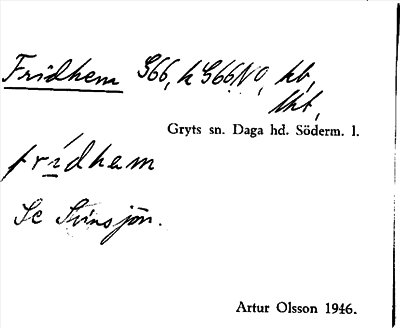 Fridhem G66, h G66NO, hb,
lht,
Gryts sn. Daga hd. Söderm. l.
fri̱dhem
Se Svinsjön.
Artur Olsson 1946.